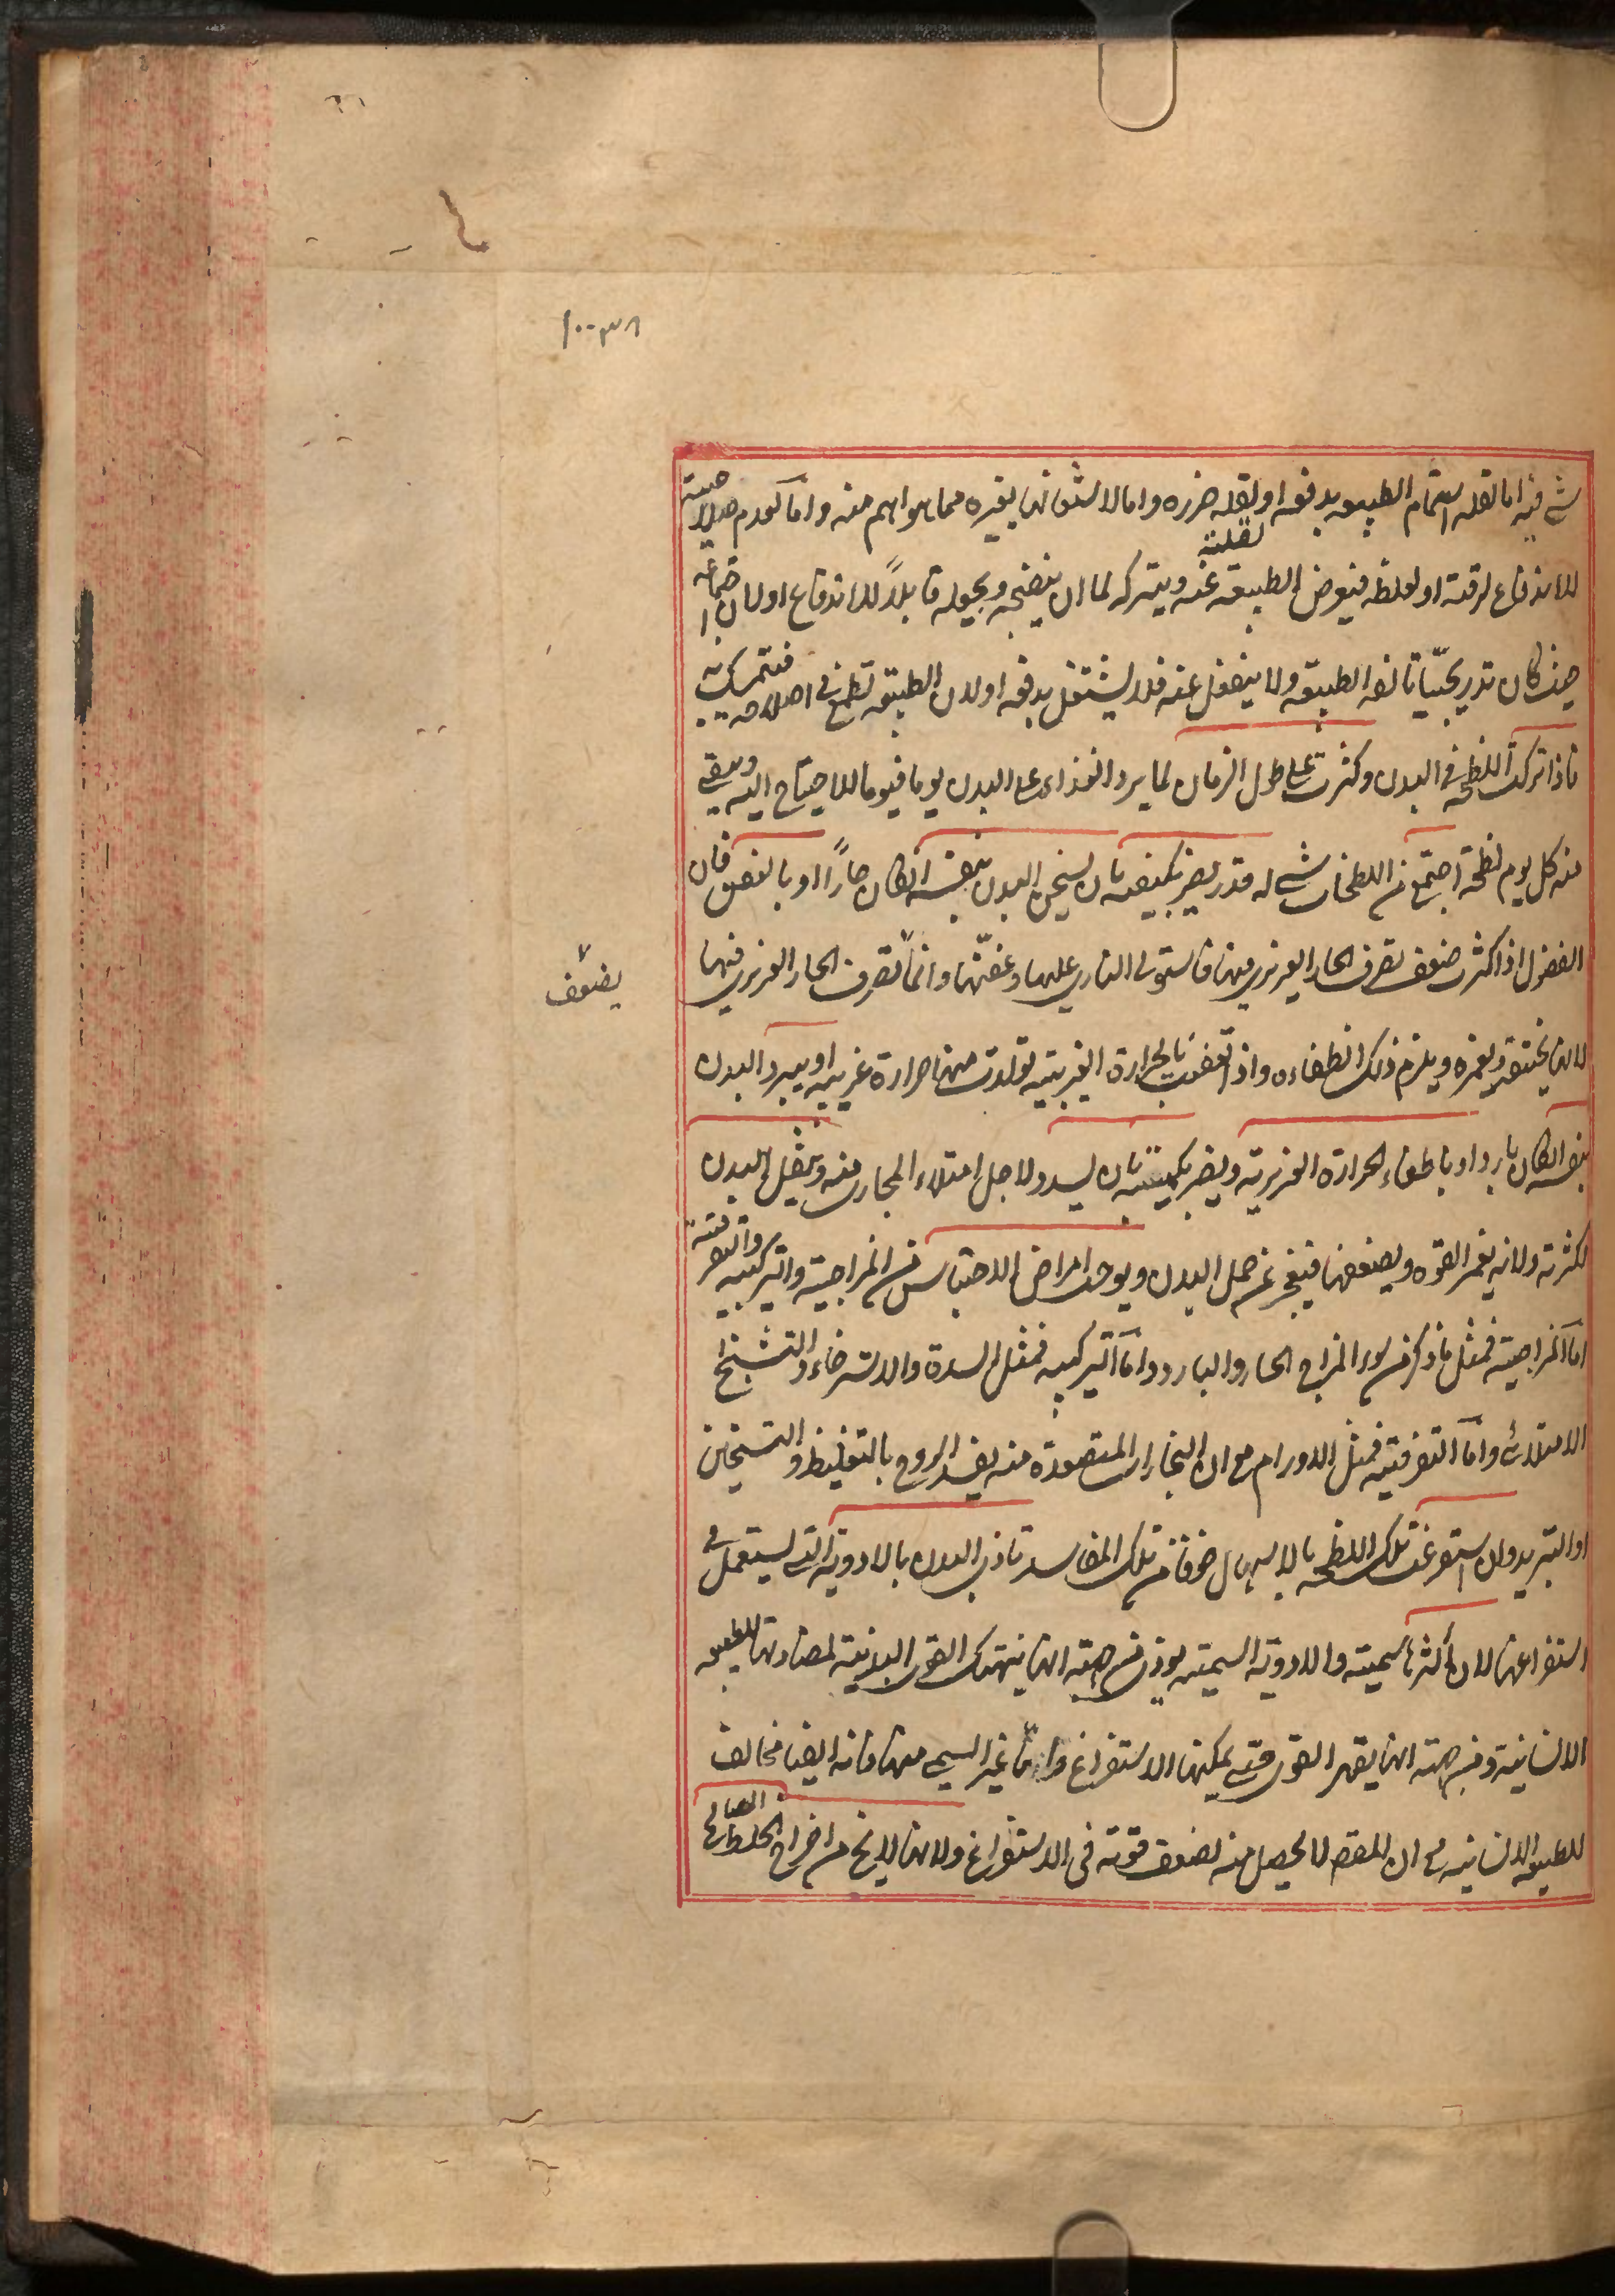 ١٠٠٣٨
شي فيه اما لقلة اهتمام الطبيعة بدفعه او لقلة ضرره واما لاشتغالها بغيره مما هو اهم منه واما لعدم صلاحيته
للاندفاع لرقته او لغلظه فيعرض الطبيعة عنه ويتركه الى ان ينضجه ويجعله قابلاً للاندفاع او لان اجتماعه لقلته
حيث كان تدريجيّا تالفه الطبيعة ولا ينفعل عنه فلا يشتغل بدفعه او لان الطبيعة تطمع في اصلاحه فتمسك به
فاذا تركت اللطخة في البدن وكثرت على طول الزمان لما يرد الغذاء على البدن يوما فيوما للاحتياج اليه ويبقى
منه كل يوم لطخة اجتمع من اللطخات شي له قدر يضر بكيفيته بان يسخن البدن بنفسه ان كان حارًا او بالعفن فان
الفضول اذا كثرت ضعف تصرف الحار الغريزي فيها فاستولى الناري عليها وعفّنها وانما تصرف الحار الغريزي فيها
يضعف
لانها يختقه ويغمره ويلزم ذلك انطفاءه واذا تعفنت بالحرارة الغريبية تولدت منها حرارة غريبية او يبرد البدن
بنفسه ان كان باردا او باطفاء الحرارة الغريزية ويضر بكميته بان يسدد لاجل امتلاء المجاري منه ويثقل البدن
لكثرته ولانه يغمر القوة ويضعفها فيعجز عن حمل البدن ويوجب امراض الاحتباس من المزاجية والتركيبية والتفرقية
اما المزاجية فمثل ما ذكر من سوء المزاج الحار والبارد واما التركيبية فمثل السدة والاسترخاء والتشنج
الامتلائي واما التفرقية فمثل الاورام مع ان البخارات المتصعدة منه يفسد الروح بالتغليظ والتسخين
او التبريد وان استفرغت تلك اللطخة بالاسهال خوفا من تلك المفاسد تاذى البدن بالادوية التي يستعمل في
استفراغها لان اكثرها سمية والادوية السمية يوذي من جهة انها ينهك القوى البدنية لمضادتها للطبيعة
الانسانية ومن جهة انها يقهر القوى حتى يمكنها الاستفراغ واما غير السمي منها فانه ايضا مخالف
للطبيعة الانسانية مع ان المقصود لا يحصل منه لضعف قوته في الاستفراغ ولانها لا يخ من اخراج الخلط الصالح